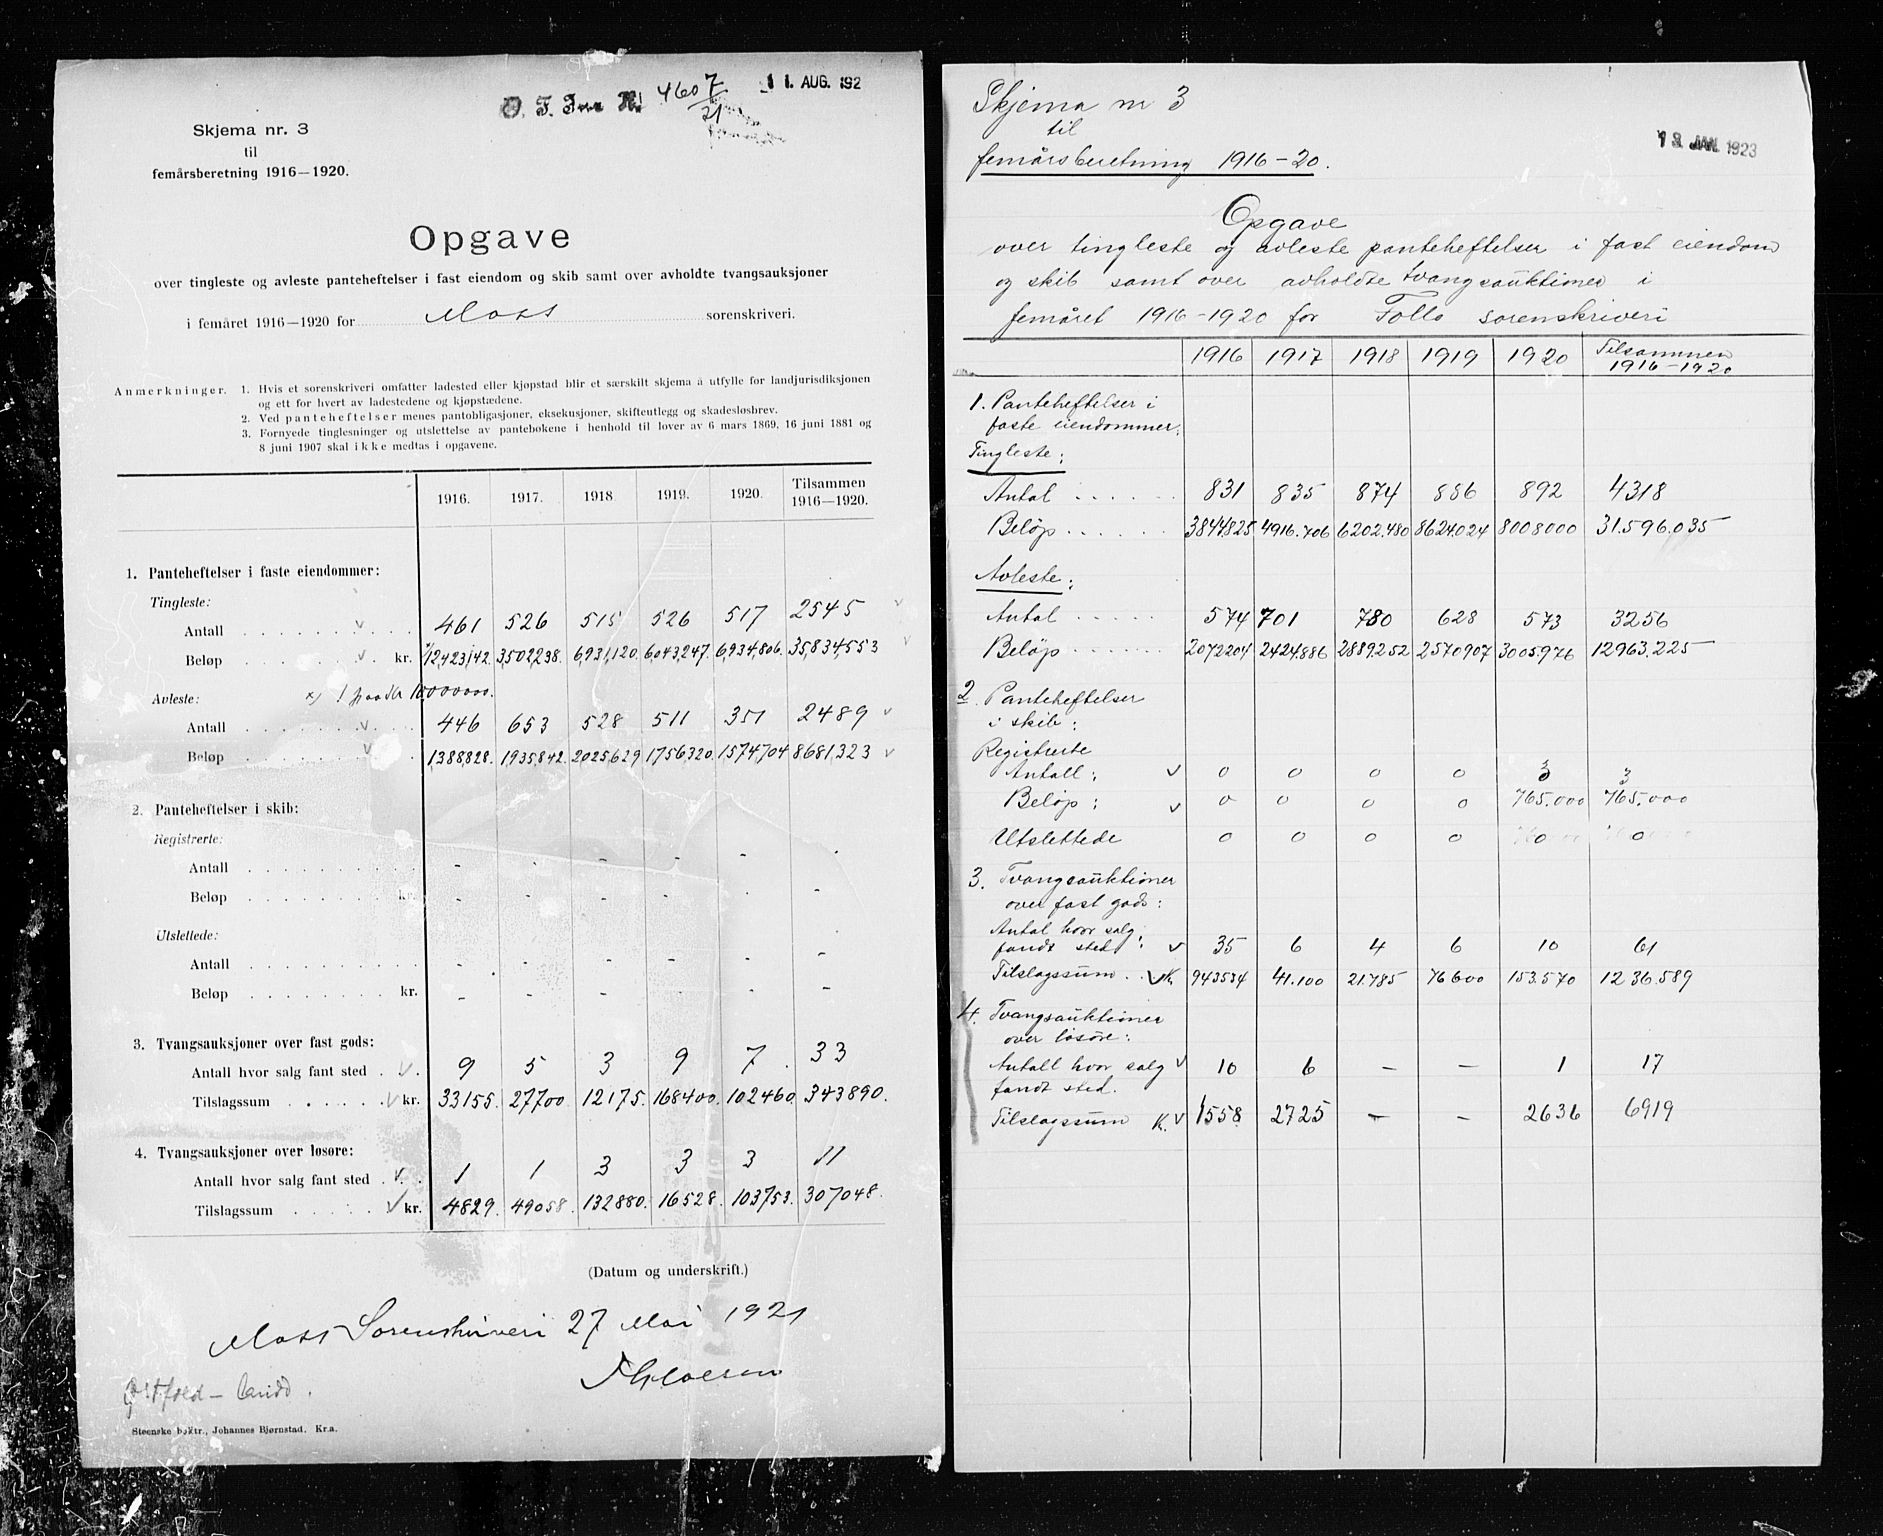 4607
21
11. AUG. 192
Skjema nr. 3
til
femårsberetning 1916—1920.
Opgave
over tingleste og avleste panteheftelser i fast eiendom og skib samt over avholdte tvangsauksjoner
i femåret 1916—1920 for Moss sorenskriveri.
Anmerkninger. 1. Hvis et sorenskriveri omfatter ladested eller kjøpstad blir et særskilt skjema å utfylle for landjurisdiksjonen
og ett for hvert av ladestedene og kjøpstædene.
2. Ved panteheftelser menes pantobligasjoner, eksekusjoner, skifteutlegg og skadesløsbrev.
3. Fornyede tinglesninger og utslettelse av pantebøkene i henhold til lover av 6 mars 1869, 16 juni 1881 og
8 juni 1907 skal ikke medtas i opgavene.
1916. 1917. 1918 1919. 1920. Tilsammen 1916—1920.
1. Panteheftelser i faste eiendommer:
Tingleste:
Antall 461 526 515 526 517 2545
Beløp kr. 12,423,142. 3,502,238. 6,931,120. 6,043,247. 6,934,806. 35,834,553
Avleste: x) 10000000.
Antall 446 653 528 511 351 2489
Beløp 1,388,828. 1,935,842. 2025,629 1756320. 1574,704 8681,323
2. Panteheftelser i skib:
Registrerte:
Antall - - - - - -
Beløp kr. - - - - - -
Utslettede:
Antall - - - - - -
Beløp kr. - - - - - -
3. Tvangsauksjoner over fast gods:
Antall hvor salg fant sted 9 5 3 9 7 33
Tilslagssum kr. 33155. 27700 12175. 168400. 102460. 343890.
4. Tvangsauksjoner over løsøre:
Antall hvor salg fant sted 1 1 3 3 3 11
Tilslagssum kr. 4829. 49058. 132880. 16528. 103753. 307048.
(Datum og underskrift.)
Moss Sorenskriveri 27 Mai 1921
Østfold - landd.
Steenske boktr., Johannes Bjørnstad. Kr.a.
Skjema nr 3
til
femårsberetning 1916-20.
13 JAN. 1923
Opgave
over tingleste og avleste panteheftelser i fast eiendom
og skib samt over avholdte tvangsauktioner i
femåret 1916-1920 for Follo sorenskriveri
1916 1917 1918 1919 1920 Tilsammen 1916-1920
1. Panteheftelser i
faste eiendommer.
Tingleste:
Antal 831 835 874 886 892 4318
Beløp 3844.825 4916.706 6202.480 8624.024 8008000 31.596.035
Avleste:
Antal 574 701 780 628 573 3256
Beløp 2072204 2424.886 2889.252 2570907 3005.976 12963.225
2. Panteheftelser
i skib:
Registrerte
Antall: 0 0 0 0 3 3
Beløp: 0 0 0 0 765.000 765.000
Utslettede 0 0 0 0 0 0
3. Tvangsauktioner
over fast gods:
Antal hvor salg
fandt sted: 35 6 4 6 10 61
Tilslagssum K. 943534 41.100 21.785 76600 153.570 1236.589
4. Tvangsauktioner
over løsøre:
Antall hvor salg
fandt sted. 10 6 - - 1 17
Tilslagssum K. 1558 2725 - - 2636 6919